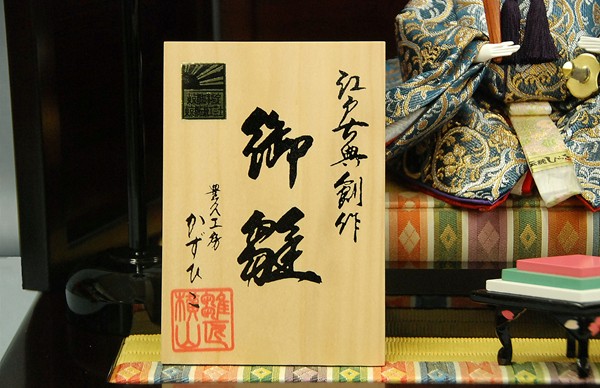 江戸古典創作
御雛
豊久工房
かずひこ
雛匠
横山